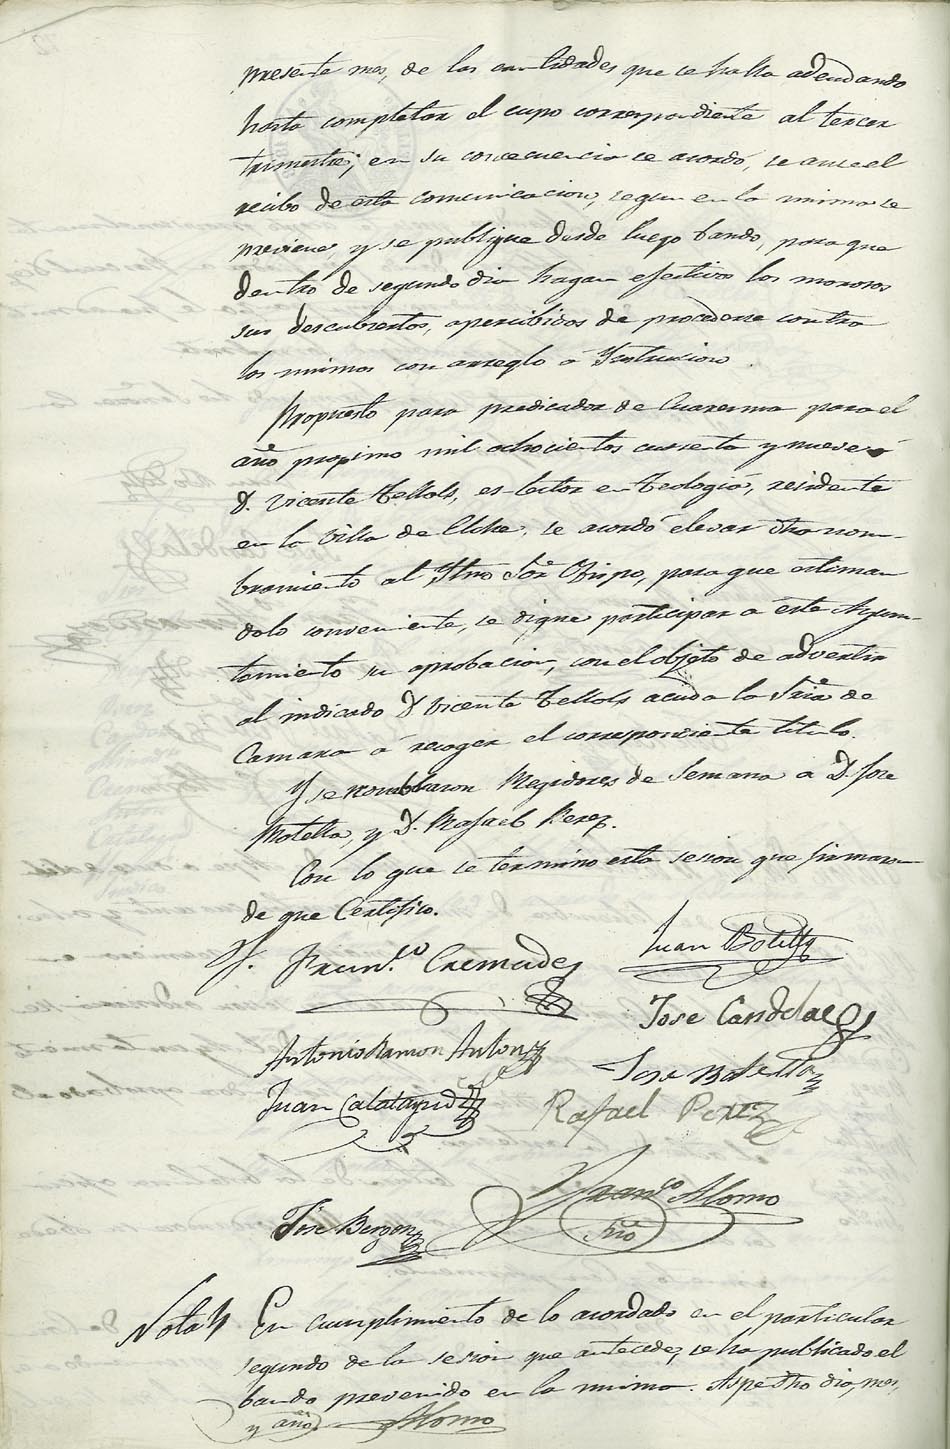 presente mes, de las cantidades que se halla adeudando
hasta completar el cupo correspondiente al tercer
trimestre; en su consecuencia se acordó, se acuse el
recibo de esta comunicacion, segun en la misma se
previene, y se publique desde luego bando, para que
dentro de segundo dia hagan efectivos los morosos
sus descubiertos, apercibidos de procederse contra
los mismos con arreglo á Ystruccion.
Propuesto para predicador de Cuaresma para el
año proximo mil ochocientos cuarenta y nueve á
D. Vicente Tellols, es-lector en Teologia, residente
en la Villa de Elche, se acordó elevar dho nom-
bramiento al Ytmo Sor Obispo, para que estiman
dolo conveniente, se digne participar á este Ayun-
tamiento su aprobacion, con el objeto de advertir
al indicado D Vicente Tellols acuda a la Sria de
Camara á recoger el correspondiente titulo.
Y se nombraron Regidores de Semana a D. Jose
Motella, y D. Rafael Perez.
Con lo que se terminó esta sesion que firmaron
de que Certifico.
Franco Cremades
Juan Botella
Jose Candela
Antonio Ramon Anton
Jose Botella
Juan Calatayud
Rafael Perez
Franco Alonso
Srio
Jose Berzon
Nota En cumplimiento de lo acordado en el particular
segundo de la sesion que antecede, se ha publicado el
bando prevenido en la misma. Aspe dho dia, mes,
y año. Alonso